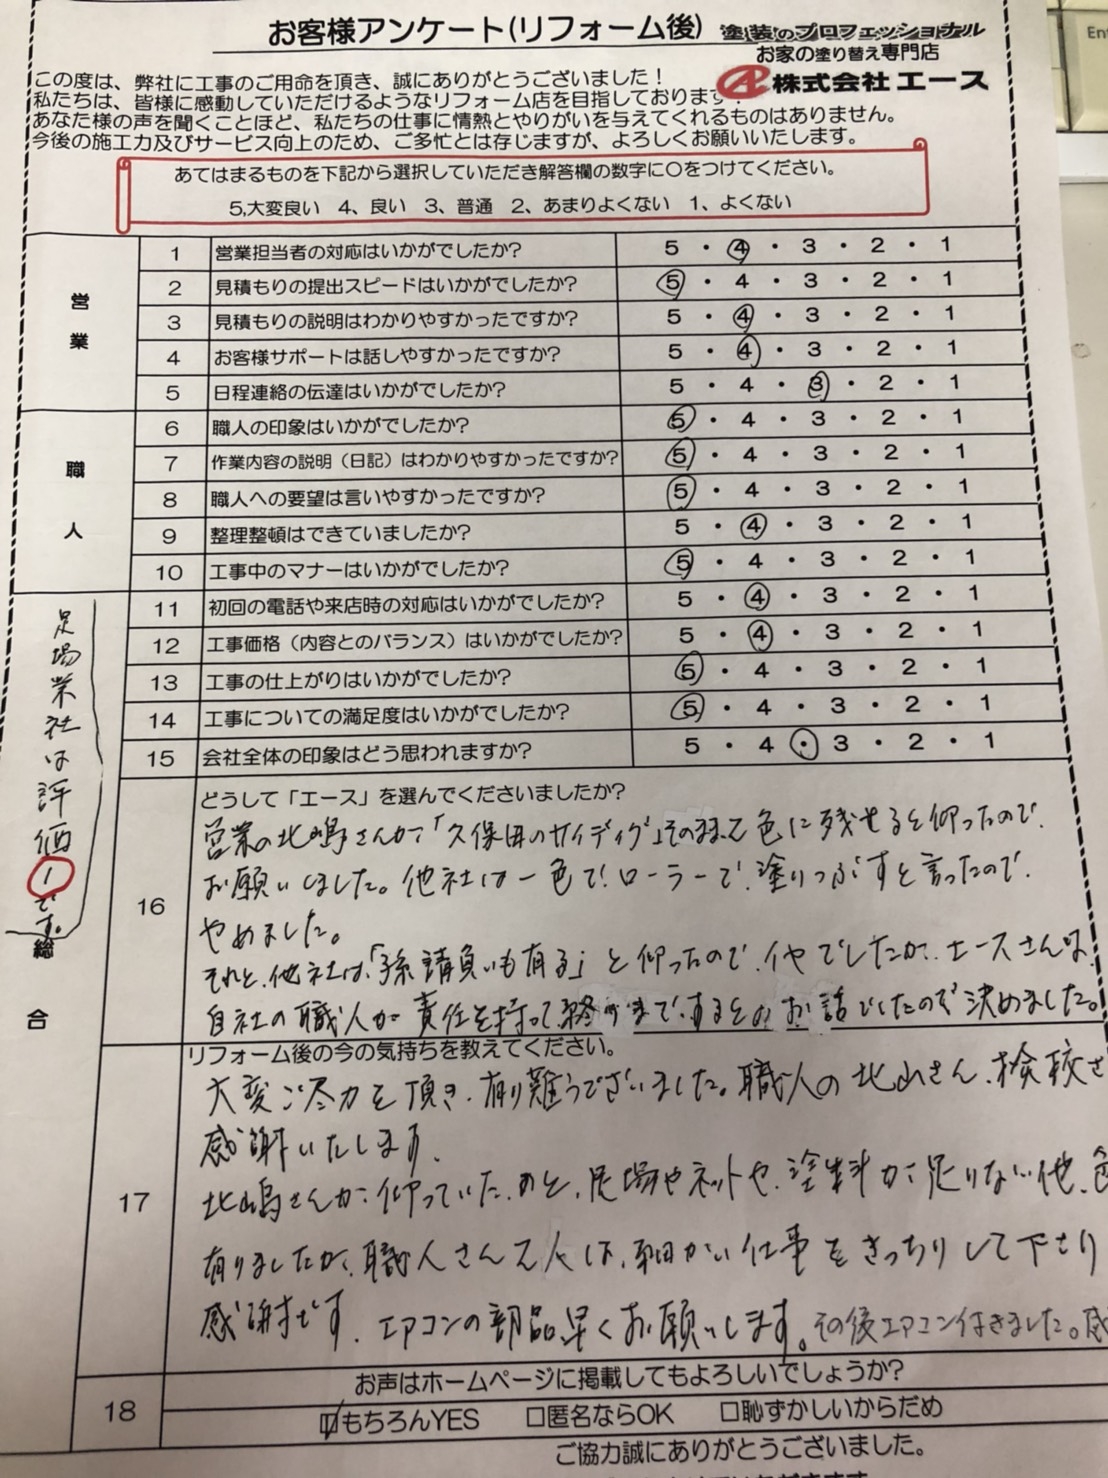 お客様アンケート(リフォーム後)
塗装のプロフェッショナル
お家の塗り替え専門店
株式会社 エース
この度は、弊社に工事のご用命を頂き、誠にありがとうございました!
私たちは、皆様に感動していただけるようなリフォーム店を目指しております!
あなた様の声を聞くことほど、私たちの仕事に情熱とやりがいを与えてくれるものはありません。
今後の施工力及びサービス向上のため、ご多忙とは存じますが、よろしくお願いいたします。
あてはまるものを下記から選択していただき解答欄の数字に○をつけてください。
5,大変良い 4、良い 3、普通 2、あまりよくない 1、よくない
営業
1 営業担当者の対応はいかがでしたか? 5・4・3・2・1
2 見積もりの提出スピードはいかがでしたか? 5・4・3・2・1
3 見積もりの説明はわかりやすかったですか? 5・4・3・2・1
4 お客様サポートは話しやすかったですか? 5・4・3・2・1
5 日程連絡の伝達はいかがでしたか? 5・4・3・2・1
職人
6 職人の印象はいかがでしたか? 5・4・3・2・1
7 作業内容の説明(日記)はわかりやすかったですか? 5・4・3・2・1
8 職人への要望は言いやすかったですか? 5・4・3・2・1
9 整理整頓はできていましたか? 5・4・3・2・1
10 工事中のマナーはいかがでしたか? 5・4・3・2・1
足場業社は評価1です。
総合
11 初回の電話や来店時の対応はいかがでしたか? 5・4・3・2・1
12 工事価格(内容とのバランス)はいかがでしたか? 5・4・3・2・1
13 工事の仕上がりはいかがでしたか? 5・4・3・2・1
14 工事についての満足度はいかがでしたか? 5・4・3・2・1
15 会社全体の印象はどう思われますか? 5・4・3・2・1
16 どうして「エース」を選んでくださいましたか?
営業の北嶋さんが「久保田のサイディグ」そのまま2色に残せると仰ったので、
お願いしました。他社は一色でローラーで塗りつぶすと言ったので、
やめました。
それと、他社は、「孫請負いも有る」と仰ったので、イヤでしたが、エースさんは、
自社の職人が責任を持って終りまでするとのお話でしたので決めました。
17 リフォーム後の今の気持ちを教えてください。
大変ご尽力を頂き、有り難うございました。職人の北山さん、検校さ
感謝いたします。
北嶋さんが仰っていた、のと、足場やネットや、塗料が足りない他、色
有りましたが、職人さん2人は、細かい仕事をきっちりして下さり
感謝です。エアコンの部品早くお願いします。その後エアコン付きました。感
18 お声はホームページに掲載してもよろしいでしょうか?
☑もちろんYES □匿名ならOK □恥ずかしいからだめ
ご協力誠にありがとうございました。